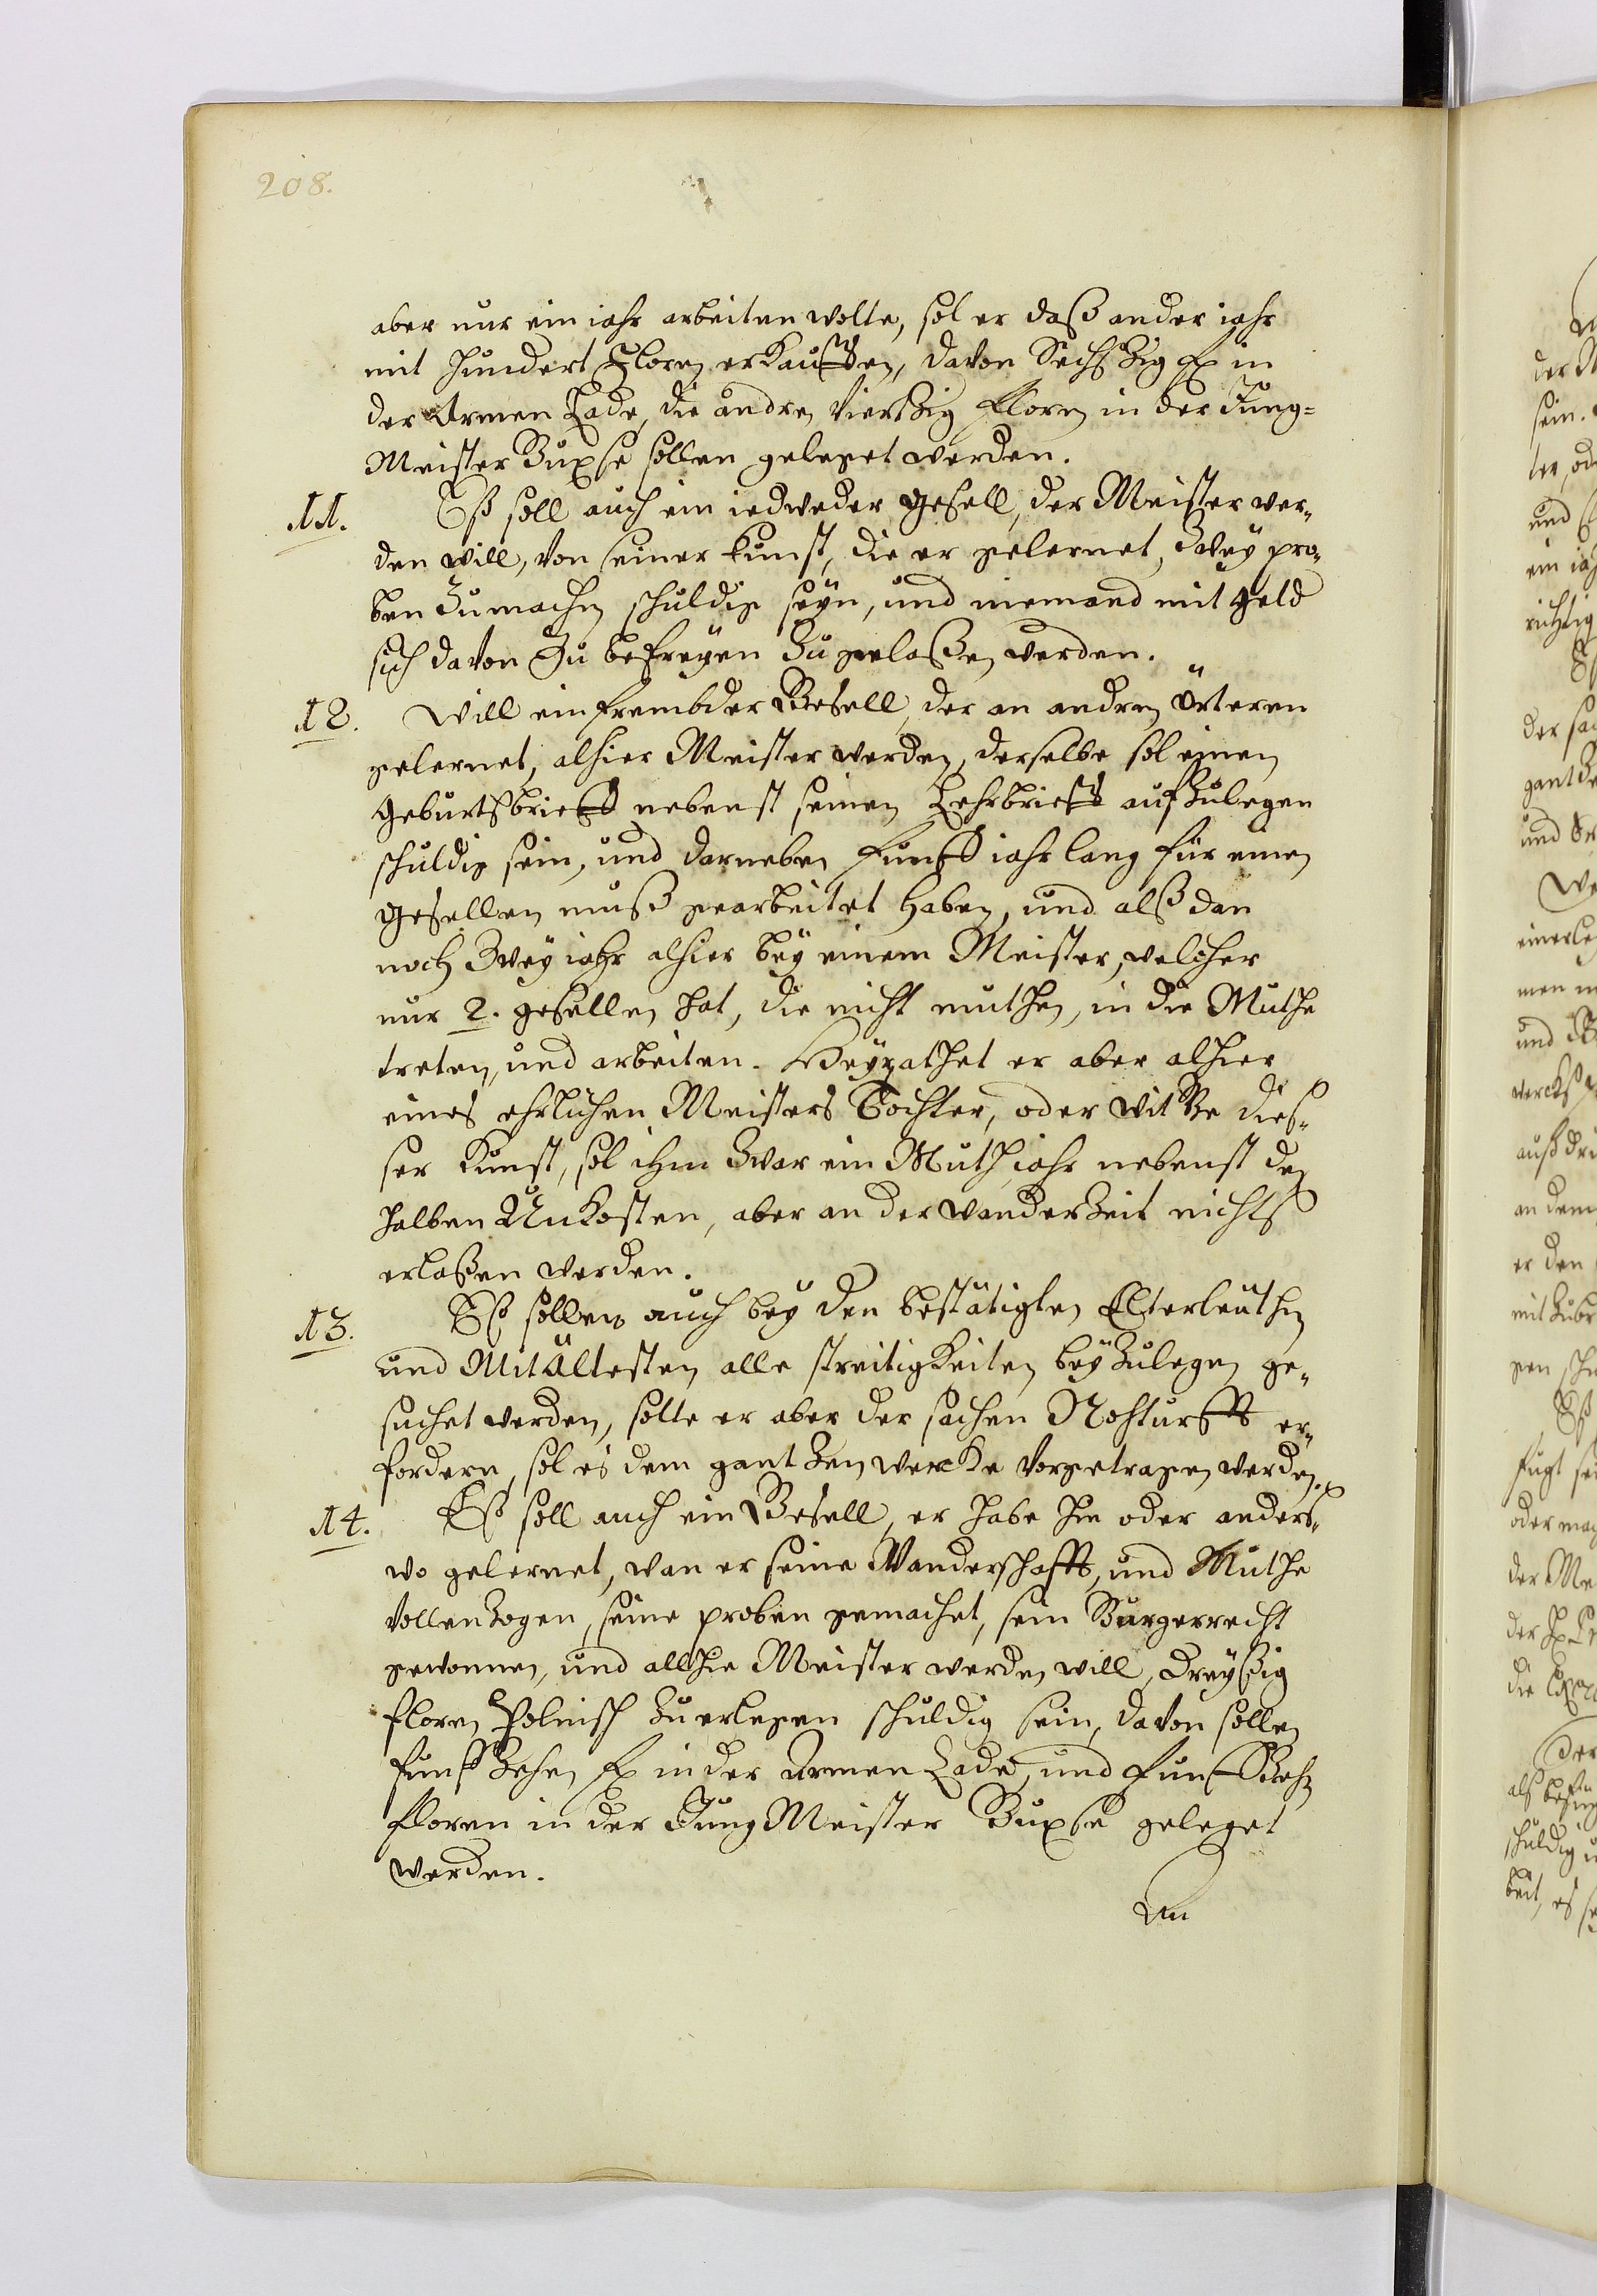 208.
aber nur ein iahr arbeiten wolte, sol er daß ander iahr
mit hundert Floren erkauffen, davon Sechszig fl in
der Armen Lade, die andre viertzig floren in der Jung=
Meister Buxse sollen geleget werden.
11. Eß soll auch ein iedweder gesell, der Meister wer„
den will, von seiner kunst, die er gelernet, Zwey pro„
ben Zumachen schuldig seyn, und niemand mit geld
sich davon Zu befreyen Zugelaßen werden.
12. Will ein frembder Gesell, der an andren örteren
gelernet, alhier Meister werden, derselbe sol einen
Geburtsbrieff nebenst seinen Lehrbrieff aufZulegen
schuldig sein, und darneben funff iahr lang für einen
gesellen muß gearbeitet haben, und alß dan
noch Zwey iahr alhier bey einem Meister, welcher
nur 2. gesellen hat, die nicht muthen, in die Muthe
treten, und arbeiten. Heyrathet er aber alhier
eines ehrlichen Meisters Tochter, oder Witbe die„
ser Kunst, sol ihm Zwar ein Muth iahr nebenst den
halben Unkosten, aber an der wanderZeit nichts
erlaßen werden.
13. Eß sollen auch bey den bestätigten Elterleuthen
und Mitältesten alle streitigkeiten beyZulegen ge„
suchet werden, solte er aber der sachen Nohturfft er„
fordern, sol es dem gantzen wercke vorgetragen werden.
14. Eß soll auch ein Gesell, er habe hie oder anders„
wo gelernet, wan er seine Wanderschafft, und Muthe
vollenZogen, seine proben gemachet, sein Burgerrecht
gewonnen, und allhie Meister werden will, dreyßig
floren Polnisch Zu erlegen schuldig sein, davon sollen
funffZehen fl in der Armen Lade, und funffZehn
floren in der Jung Meister Buxse geleget
werden.
An